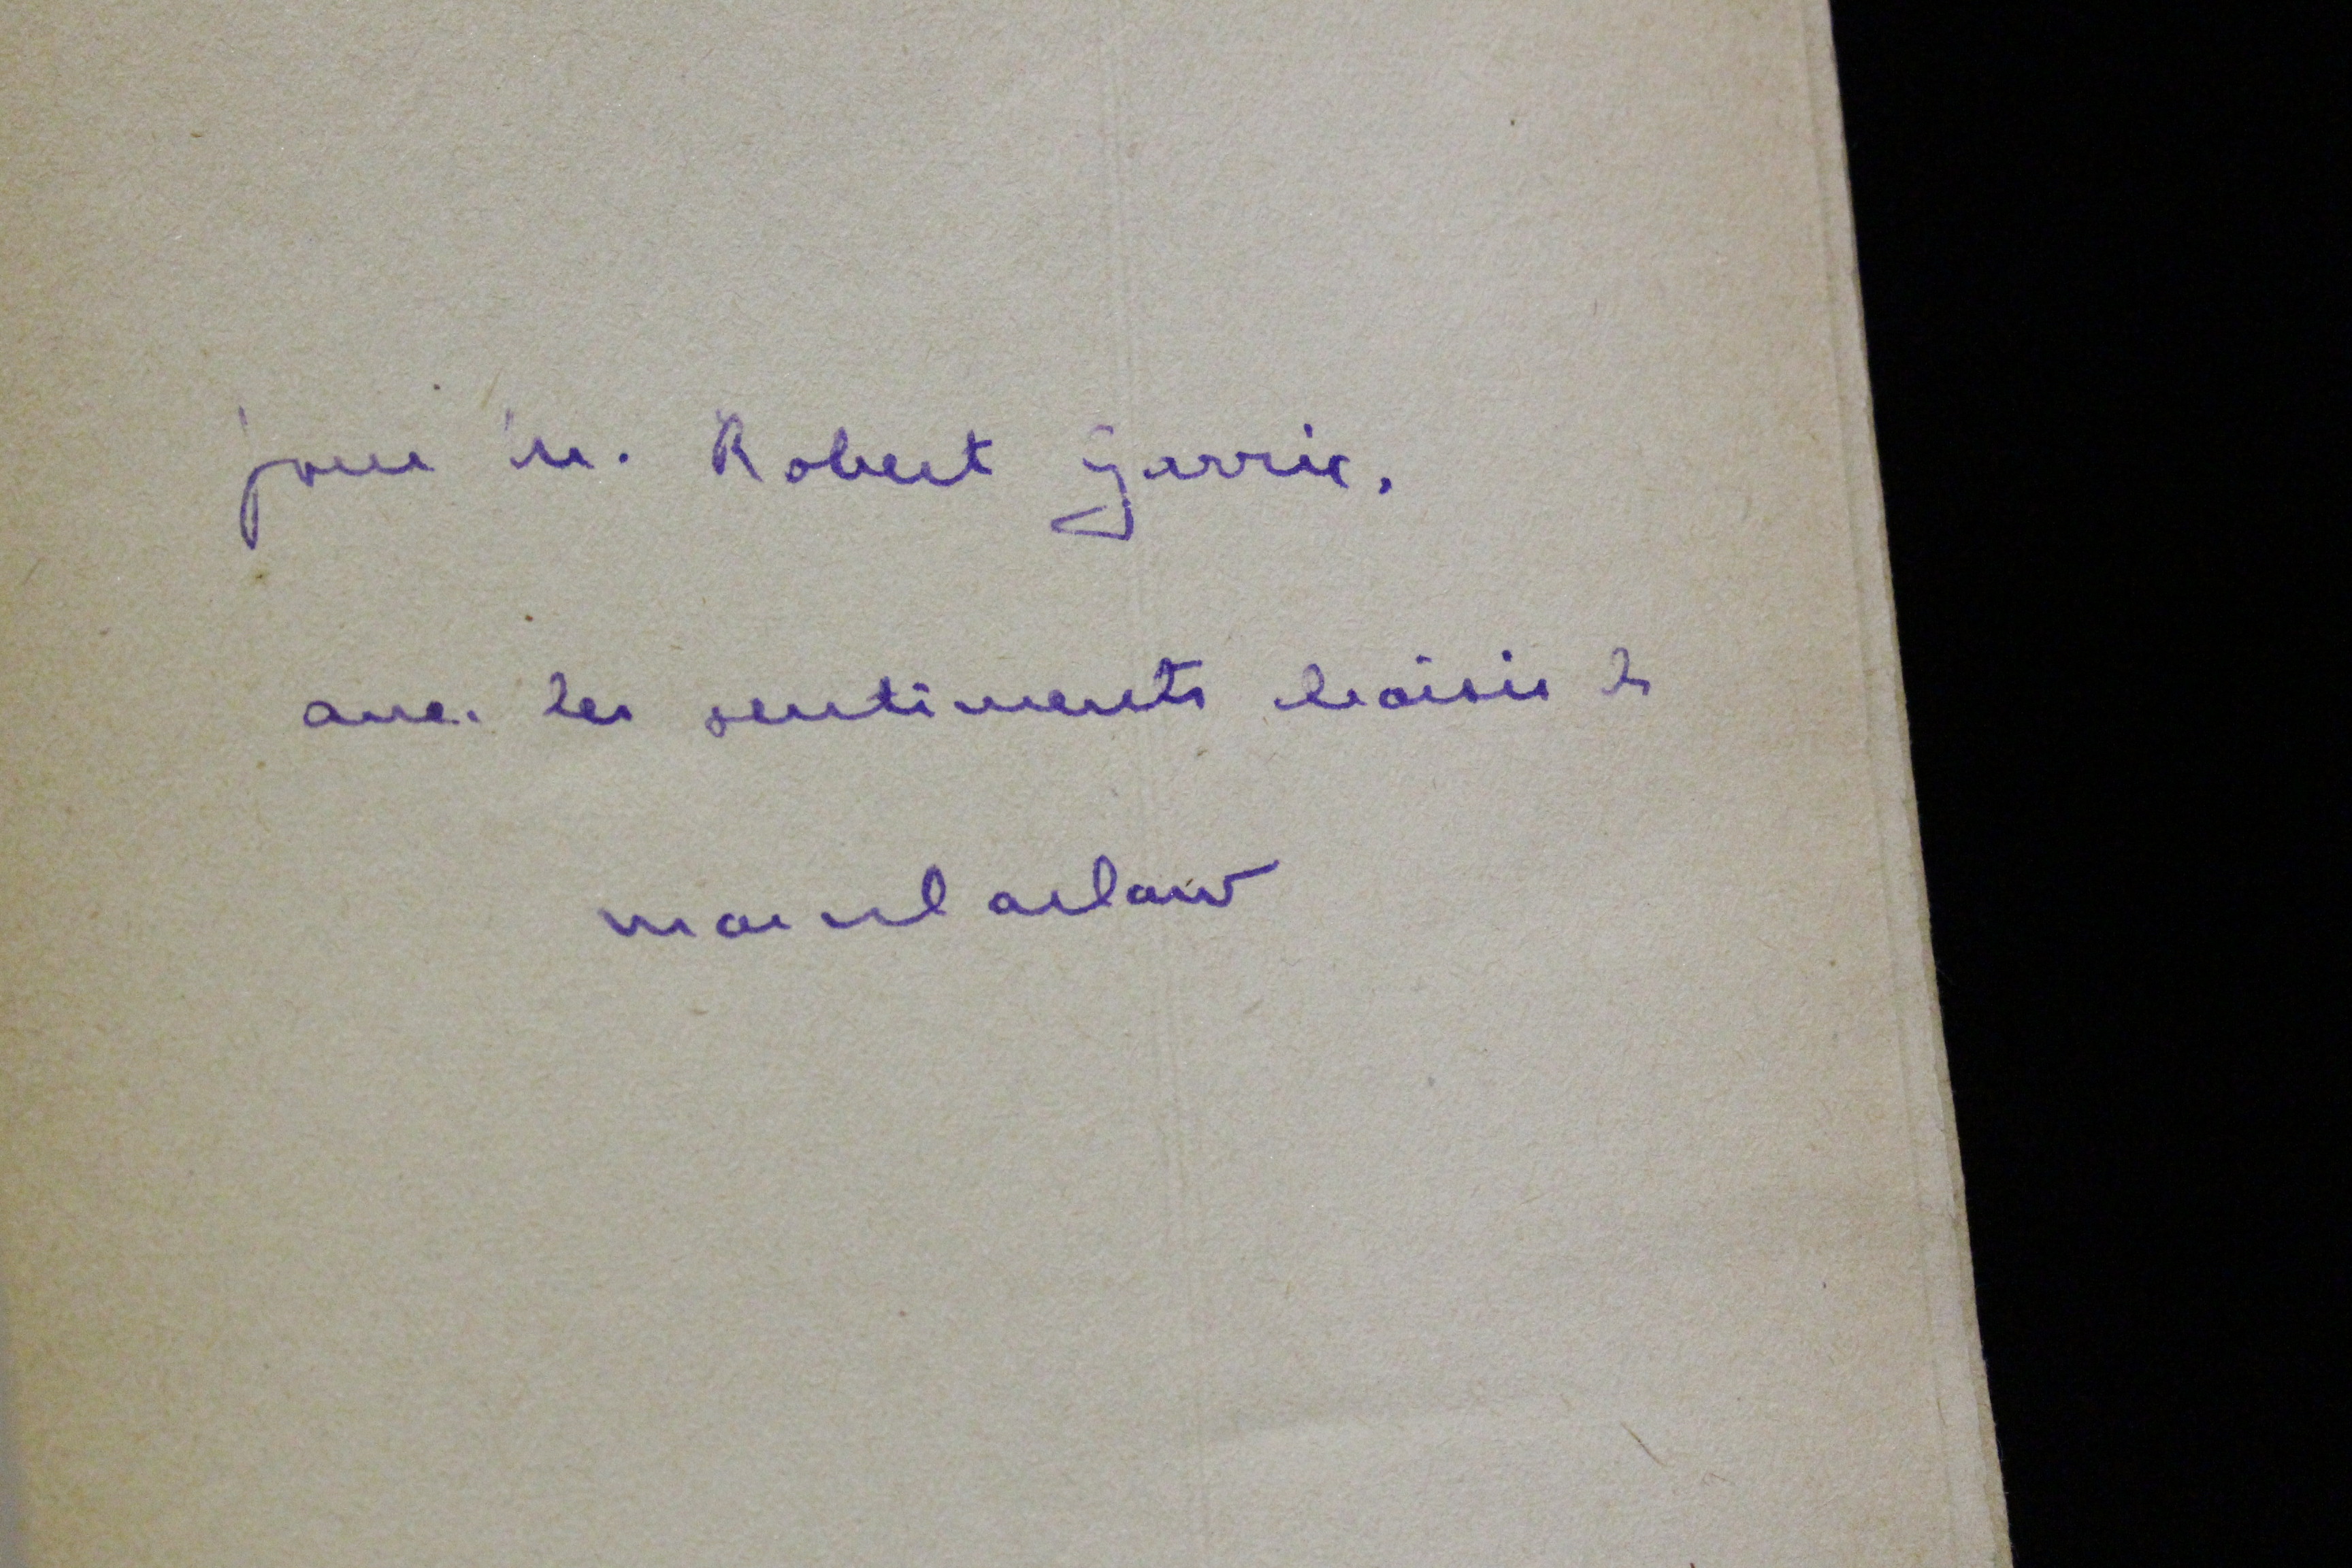 pour M. Robert Garric,
avec les sentiments choisis de
marcel arland